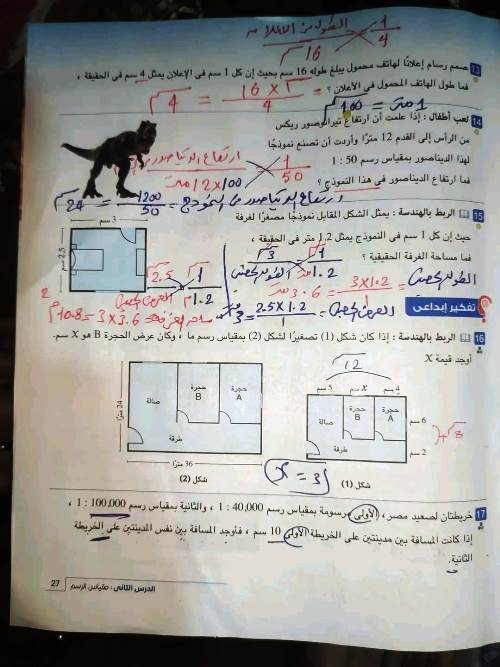 الطول في الاعلان
1
4
سم 16
13 صمم رسام إعلانًا لهاتف محمول يبلغ طوله 16 سم بحيث إن كل 1 سم في الإعلان يمثل 4 سم في الحقيقة ،
فما طول الهاتف المحمول في الإعلان ؟
سم 4 = 16 × 1 / 4
1 متر = 100 سم
14 لعب أطفال : إذا علمت أن ارتفاع تيرانوصور ريكس
من الرأس إلى القدم 12 مترًا وأردت أن تصنع نموذجًا
لهذا الديناصور بمقياس رسم 50 : 1
فما ارتفاع الديناصور في هذا النموذج ؟
1
50
12 × 100
ارتفاع الديناصور في النموذج = 1200 / 50 = 24 سم
15 الربط بالهندسة : يمثل الشكل المقابل نموذجًا مصغرًا لغرفة
حيث إن كل 1 سم في النموذج يمثل 1.2 متر في الحقيقة ،
فما مساحة الغرفة الحقيقية ؟
3 سم
2.5 سم
الطول الحقيقي = 3 × 1.2 / 1 = 3.6 متر
العرض الحقيقي = 2.5 × 1.2 / 1 = 3
10.8 = 3 × 3.6
تفكير إبداعي
16 الربط بالهندسة : إذا كان شكل (1) تصغيرًا لشكل (2) بمقياس رسم ما ، وكان عرض الحجرة B هو X سم.
أوجد قيمة X
12
4 سم
X سم
5 سم
حجرة A
حجرة B
صالة
طرقة
6 سم
2 سم
8 سم
شكل (1)
حجرة A
حجرة B
صالة
طرقة
24 مترًا
36 مترًا
شكل (2)
X = 3
17 خريطتان لصعيد مصر ، الأولى مرسومة بمقياس رسم 40,000 : 1 ، والثانية بمقياس رسم 100,000 : 1 ،
إذا كانت المسافة بين مدينتين على الخريطة الأولى 10 سم ، فأوجد المسافة بين نفس المدينتين على الخريطة
الثانية.
الدرس الثاني : مقياس الرسم 27